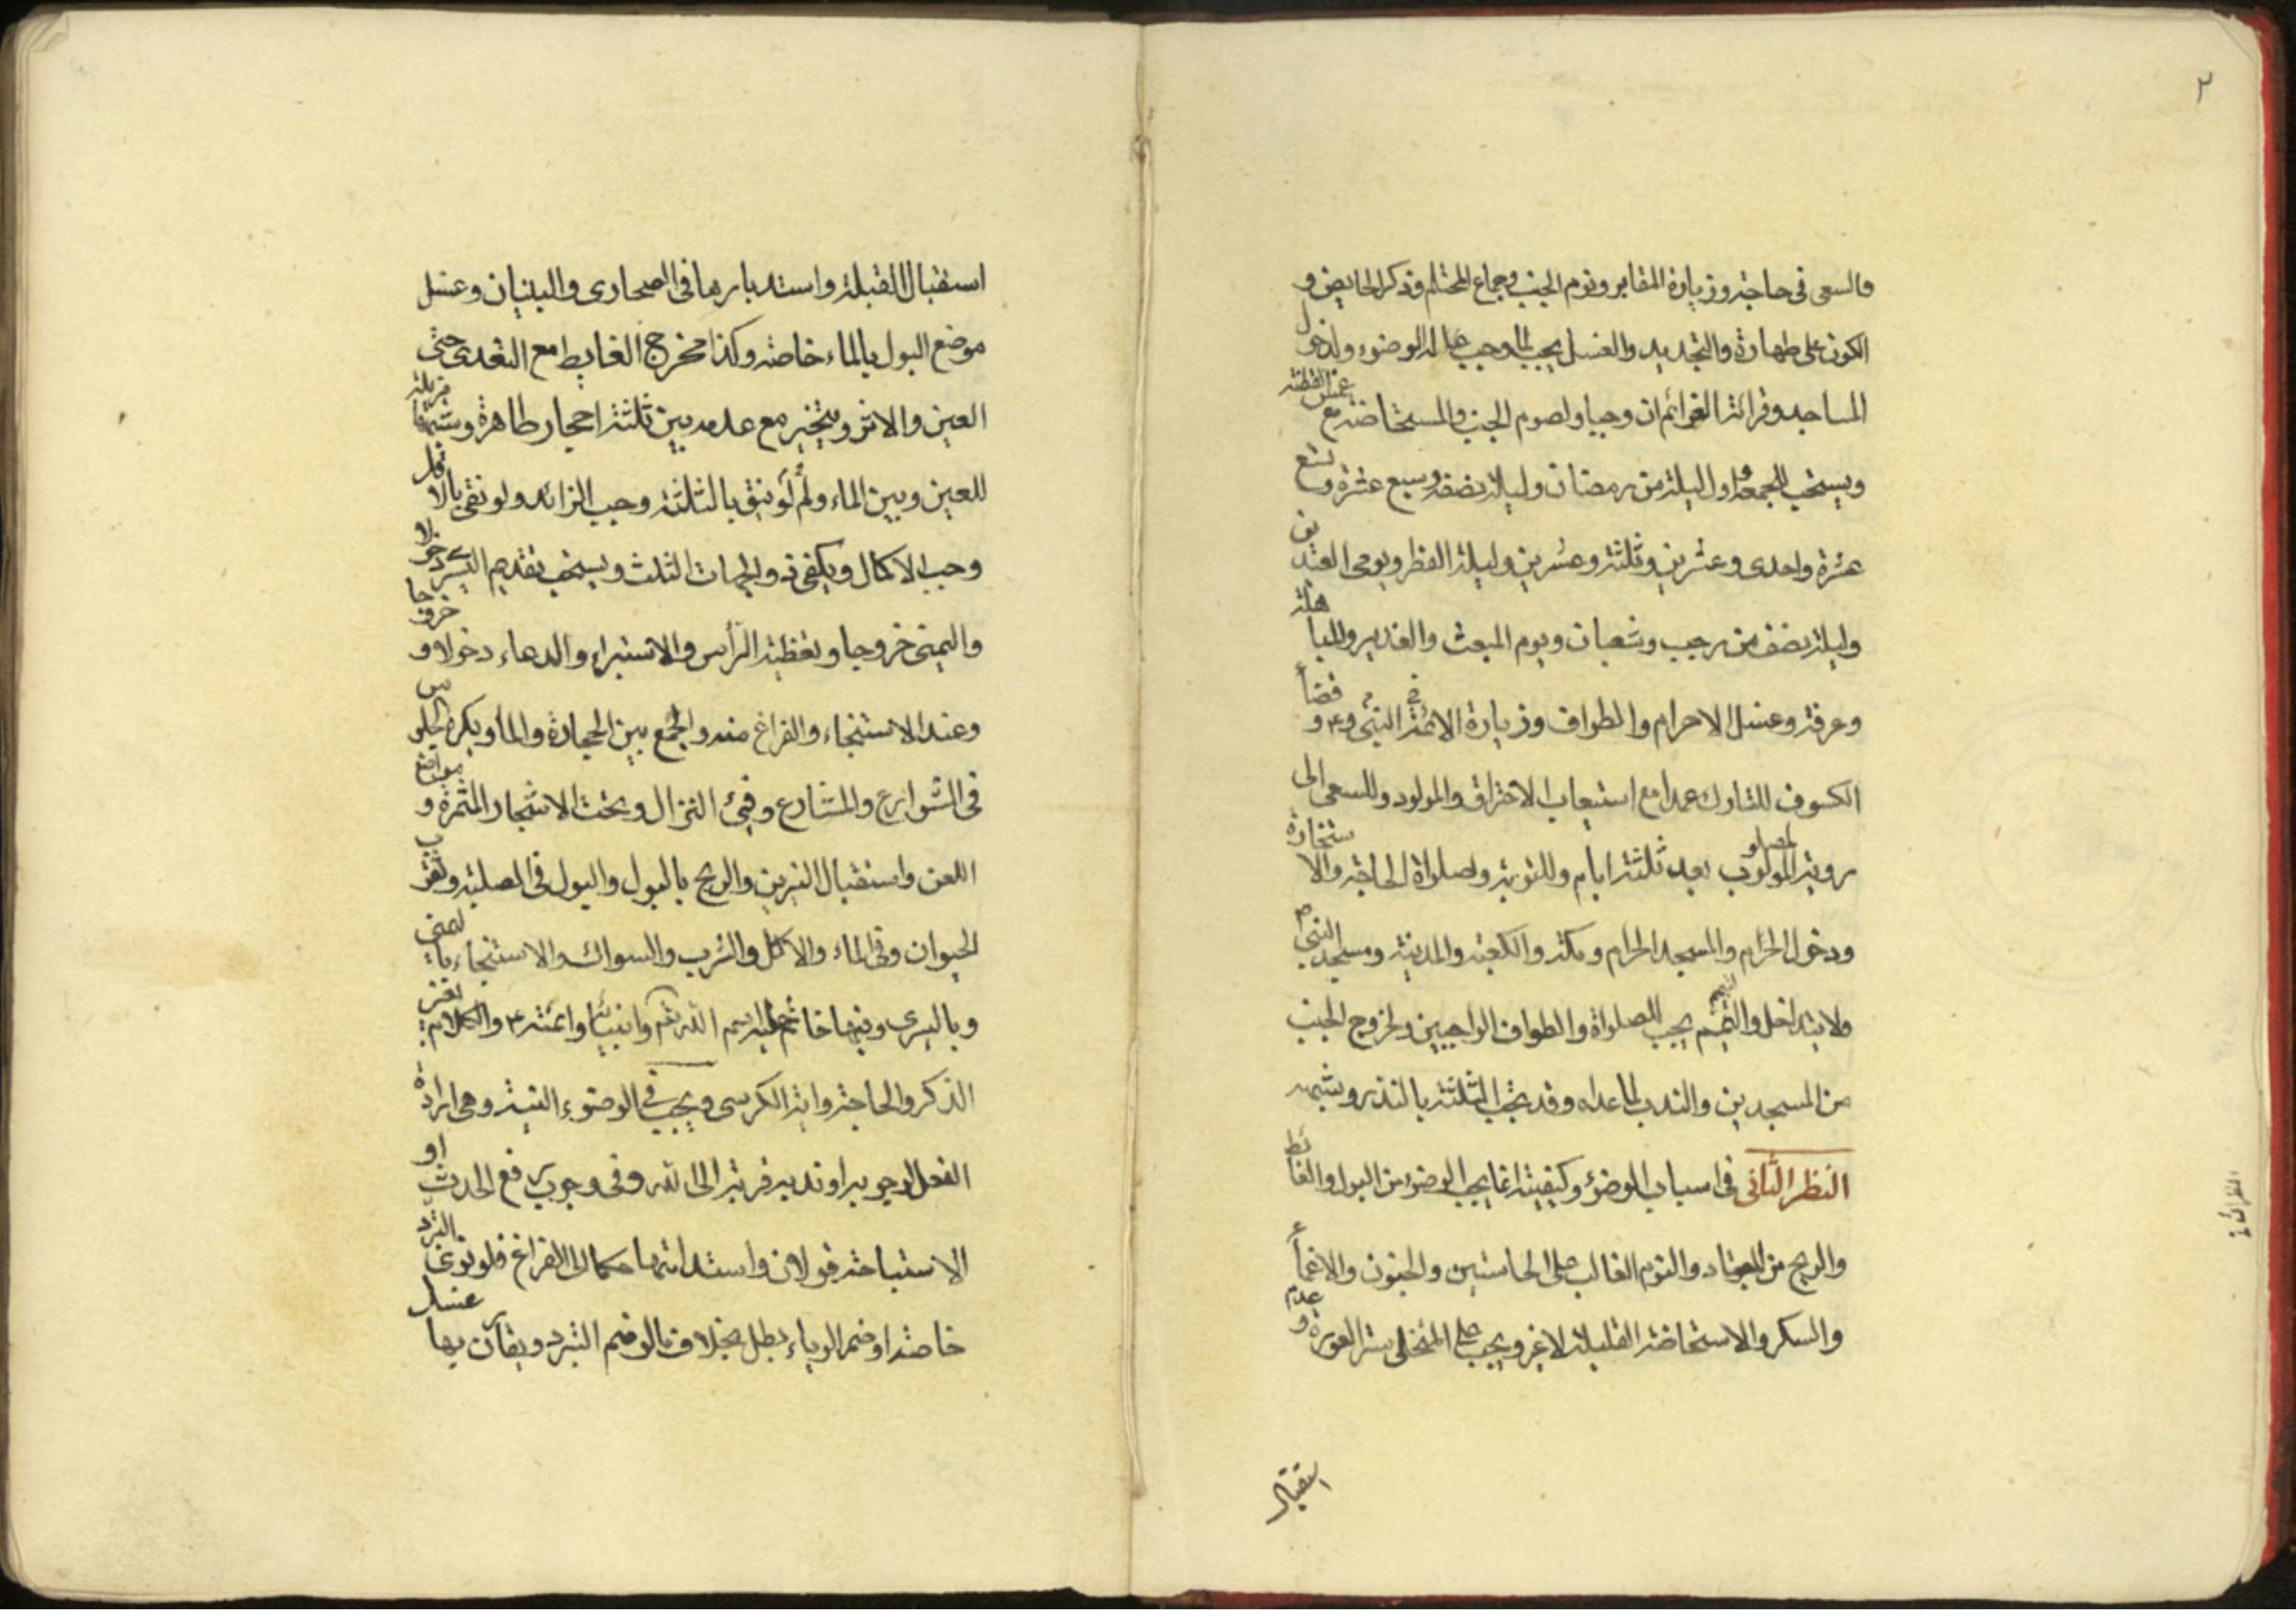 ٢
والسعى فى حاجة وزيارة المقابر ونوم الجنب وجماع المحتلم وذكر الحايض و
الكون على طهارة والتجديد والغسل يجب لما وجب له الوضوء ولدخول
المساجد وقرائة العزائم ان وجبا ولصوم الجنب والمستحاضة مع غمس القطنة
ويستحب للجمعة واول ليلة من رمضان وليلة نصفه وسبع عشرة وتسع
عشرة واحدى وعشرين وثلثة وعشرين وليلة الفطر ويومى العيدين
وليلة نصف من رجب وشعبان ويوم المبعث والغدير والمباهلة
وعرفة وغسل الاحرام والطواف وزيارة النبى والائمة ع و قضاء
الكسوف للتارك عمدا مع استيعاب الاحتراق والمولود وللسعى الى
روية المصلوب بعد ثلثة ايام وللتوبة وصلواة الحاجة والاستخارة
ودخول الحرم والمسجد الحرام ومكة والكعبة والمدينة ومسجد النبى ص
ولا يتداخل والتيمم يجب للصلواة والطواف الواجبين ولخروج الجنب
من المسجدين والندب لما عداه وقد تجب الثلثة بالنذر وشبهه
النظر الثانى فى اسباب الوضؤ وكيفيته انما يجب الوضوء من البول والغائط
والريح من المعتاد والنوم الغالب على الحاستين والجنون والاغماء
والسكر والاستحاضة القليلة لا غير ويجب على المتخلى ستر العورة و عدم
استقبال
استقبال القبلة واستدبارها فى الصحارى والبنيان وغسل
موضع البول بالماء خاصة وكذا مخرج الغايط مع التعدى حتى
العين والاثر ويتخير مع عدمه بين ثلثة احجار طاهرة وشبهها مزيلة
للعين وبين الماء ولو لم ينق بالثلثة وجب الزائد ولو نقى بالاقل
وجب الاكمال ويكفى ذو الجهات الثلث ويستحب تقديم اليسرى دخولا
واليمنى خروجا وتغطية الرأس والاستبراء والدعاء دخولا و خروجا
وعند الاستنجاء والفراغ منه والجمع بين الحجارة والماء ويكره الجلوس
فى الشوارع والمشارع وفىء النزال وتحت الاشجار المثمرة و مواضع
اللعن واستقبال النيرين والريح بالبول والبول فى الصلبة وثقوب
الحيوان وفى الماء والاكل والشرب والسواك والاستنجاء باليمنى
وباليسرى وفيها خاتم عليه اسم الله تعم وانبيائه وائمته ع والكلام بغير
الذكر والحاجة واية الكرسى ويجب فى الوضوء النية وهى ارادة
الفعل لوجوبه او ندبه قربة الى الله وفى وجوب رفع الحدث او
الاستباحة قولان واستدامتها حكما الى الفراغ فلو نوى التبرد
خاصة او ضم الرياء بطل بخلاف ما لو ضم التبرد ويقارن بها غسل
النظر الثانى